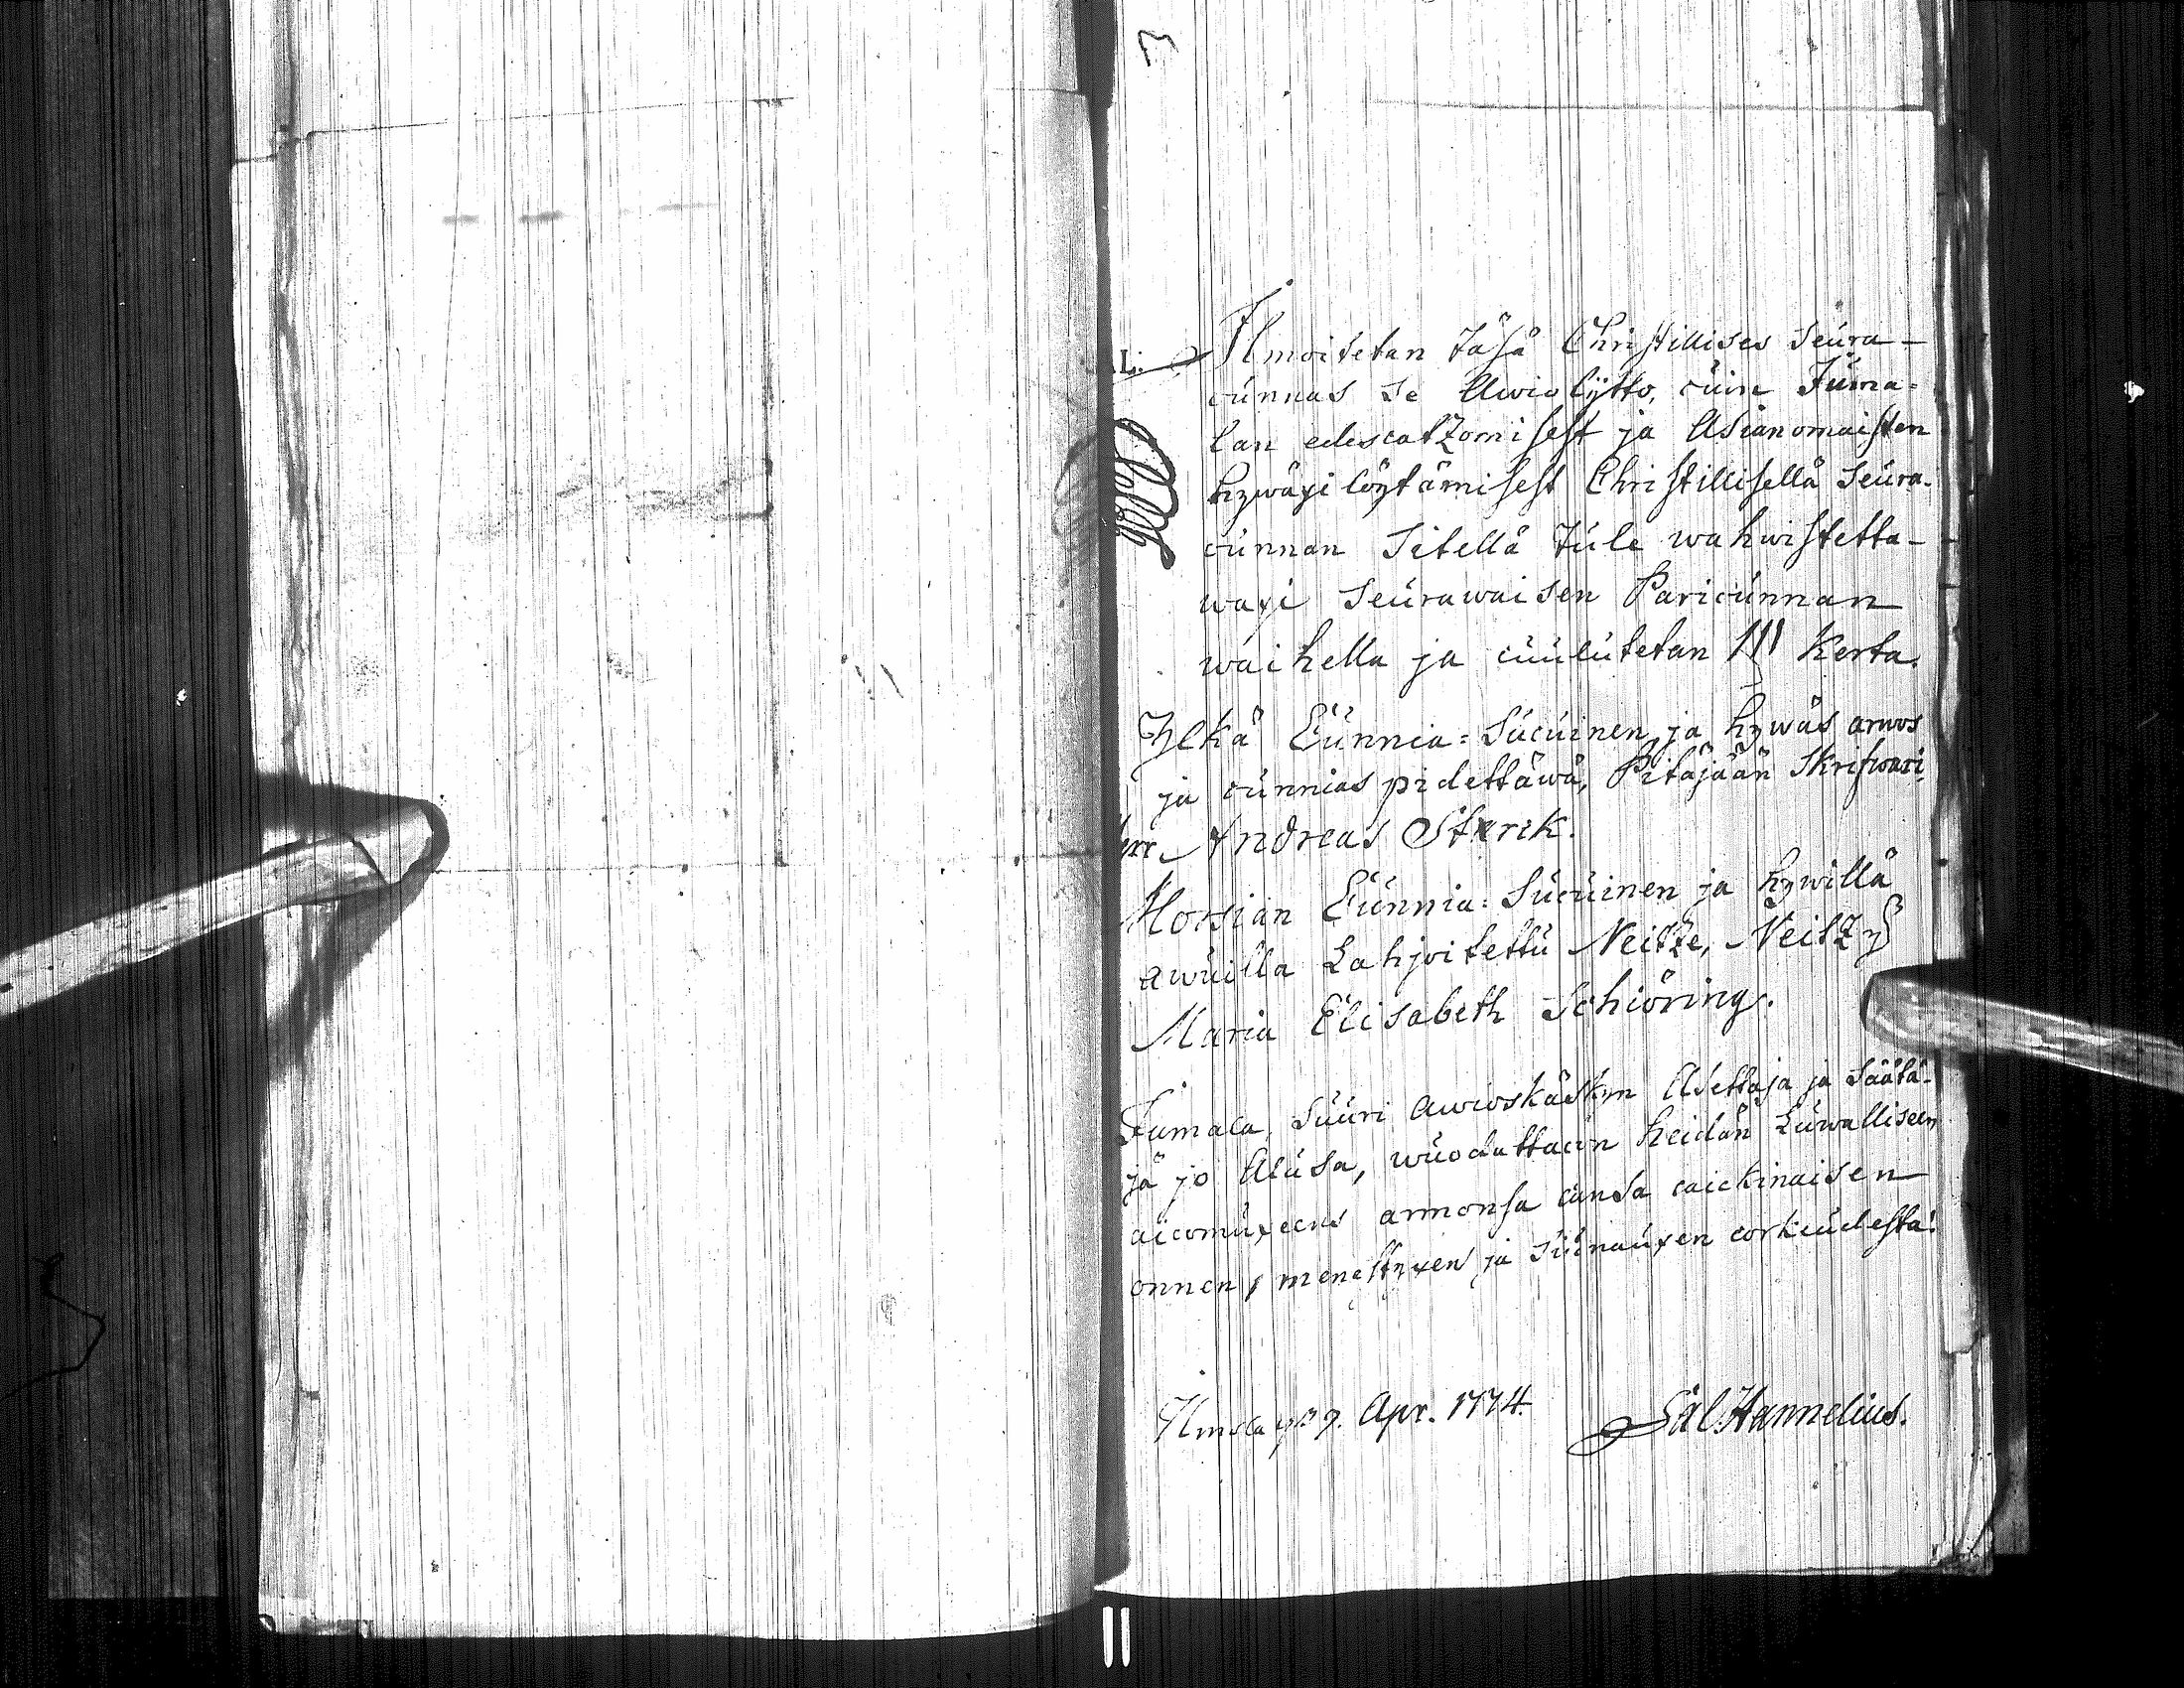 3
L.
Ilmoitetan täsä Christillises Seura-
cunnas se Awioliitto, cuin Juma-
lan edescatzomisest ja Asianomaisten
hywäxi löytämisest Christillisellä Seura-
cunnan Sitellä tule wahwistetta-
waxi seurawaisen Paricunnan
waihella ja cuulutetan III Kerta.
Ylkä Cunnia-Sucuinen ja hywäs arwos
ja cunnias pidettäwä, Pitäjään Skrifwari
Herr Andreas Starck.
Morsian Cunnia-Sucuinen ja hywillä
awuilla Lahjoitettu Neitze, Neitzy
Maria Elisabeth Schiöring.
Jumala, Suuri Awioskäskyn Asettaja ja Säätä-
jä jo Alusa, wuodattacon heidän Luwallisen
aicomuxens armonsa cansa caickinaisen
onnen, menestyxen ja Siunauxen corkiudesta!
Ilmola 9. Apr. 1774. Hannelius.